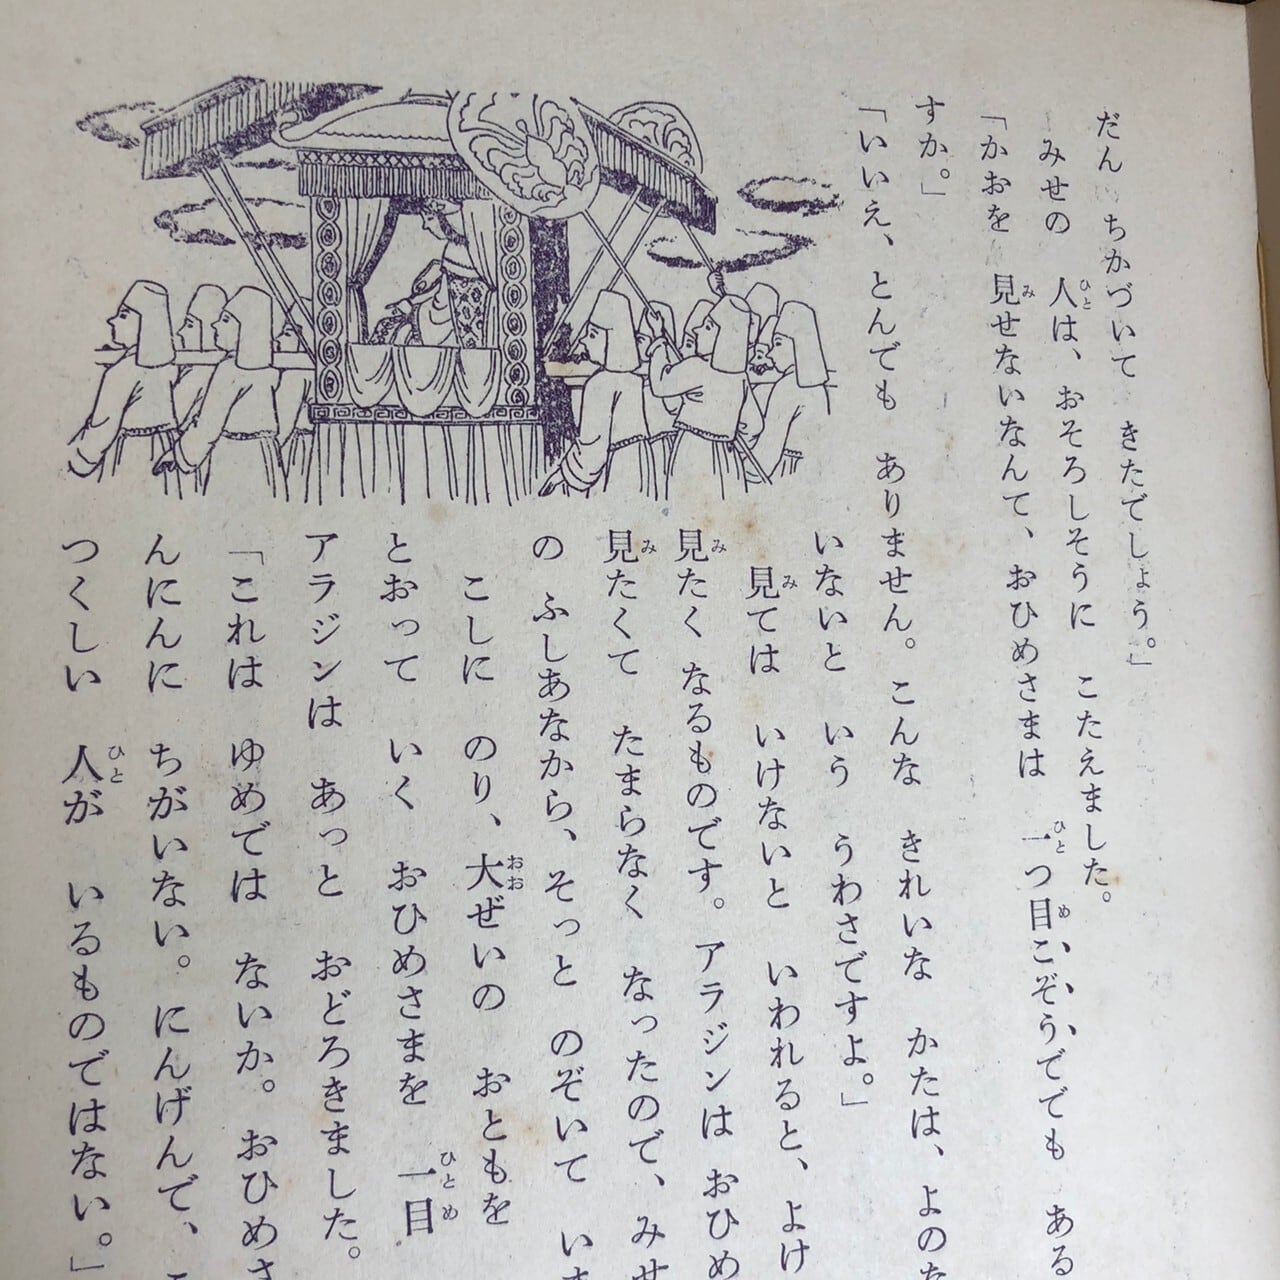 だん ちかづいて きたでしょう。」
みせの 人は、おそろしそうに こたえました。
「かおを 見せないなんて、おひめさまは 一つ目こぞうででも ある
すか。」
「いいえ、とんでも ありません。こんな きれいな かたは、よのた
いないと いう うわさですよ。」
見ては いけないと いわれると、よけ
見たく なるものです。アラジンは おひめ
見たくて たまらなく なったので、みせ
の ふしあなから、そっと のぞいて いま
こしに のり、大ぜいの おともを
とおって いく おひめさまを 一目
アラジンは あっと おどろきました。
「これは ゆめでは ないか。おひめさ
んにんに ちがいない。にんげんで、こ
つくしい 人が いるものではない。」